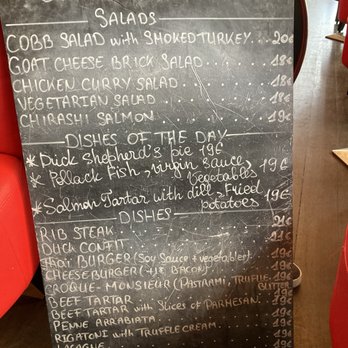 SALADS
COBB SALAD with SMOKED TURKEY.. 20€
GOAT CHEESE BRICK SALAD..... 18€
CHICKEN CURRY SALAD..... 18€
VEGETARIAN SALAD..... 18€
CHIRASHI SALMON..... 19€
DISHES OF THE DAY
* Duck Shepherd's pie 19€
* Pollack Fish, virgin sauce,
Vegetables 19€
* Salmon Tartar with dill, Fried
potatoes 19€
DISHES
RIB STEAK
DUCK CONFIT
Thai BURGER (Soy Sauce + vegetables)
CHEESE BURGER (+1€ BACON)
CROQUE-MONSIEUR (PASTRAMI, TRUFFLE
BEEF TARTAR
BEEF TARTAR with Slices of PARMESAN.
PENNE ARRABIATA
RIGATONI with TRUFFLE CREAM.